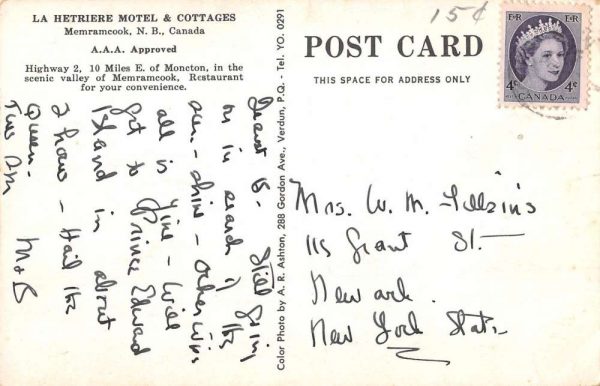 LA HETRIERE MOTEL & COTTAGES
Memramcook, N. B., Canada
A.A.A. Approved
Highway 2, 10 Miles E. of Moncton, in the
scenic valley of Memramcook, Restaurant
for your convenience.
August 18 - Still going
on in search of the
sun-shine - otherwise
all is fine - Will
get to Prince Edward
Island in about
2 hours - Hail the
Queen -
This Am
M & B
Color Photo by A. R. Ashton, 288 Gordon Ave., Verdun, P.Q. - Tel. YO. 0291
15¢
POST CARD
THIS SPACE FOR ADDRESS ONLY
E II R
E II R
4¢
4¢
CANADA
Mrs. W. M.
115 Grant St.
Newark
New York State